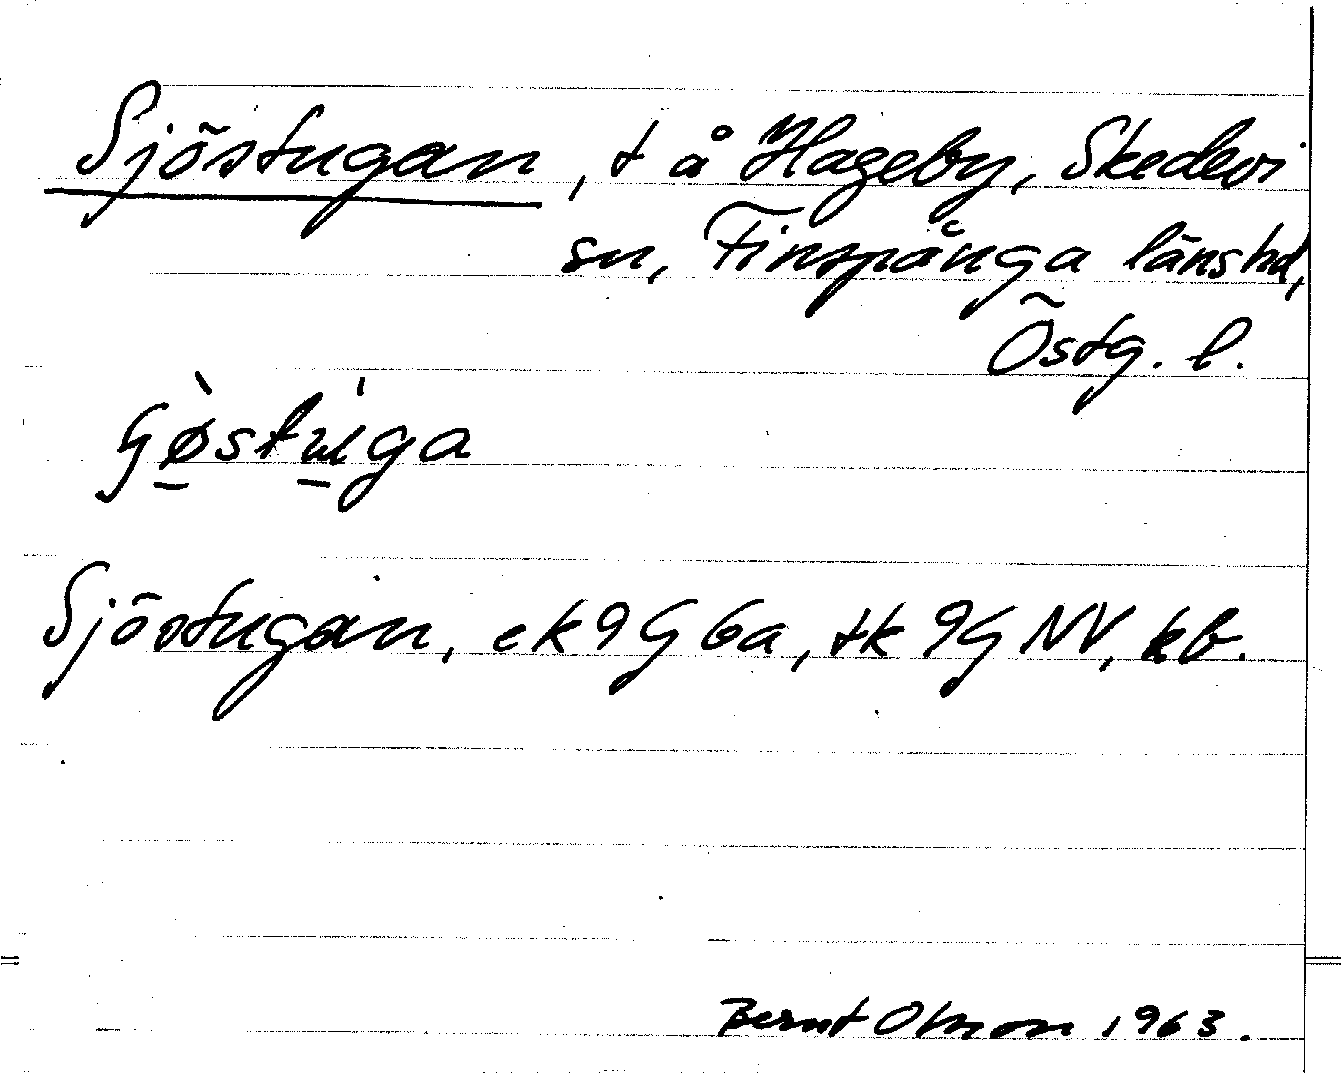 Sjöstugan, t å Hageby, Skedevi
sn, Finspånga länshd,
Östg. l.
Sjöstugan, ek 9G 6a, tk 9G NV, kb.
Bernt Olsson 1963.